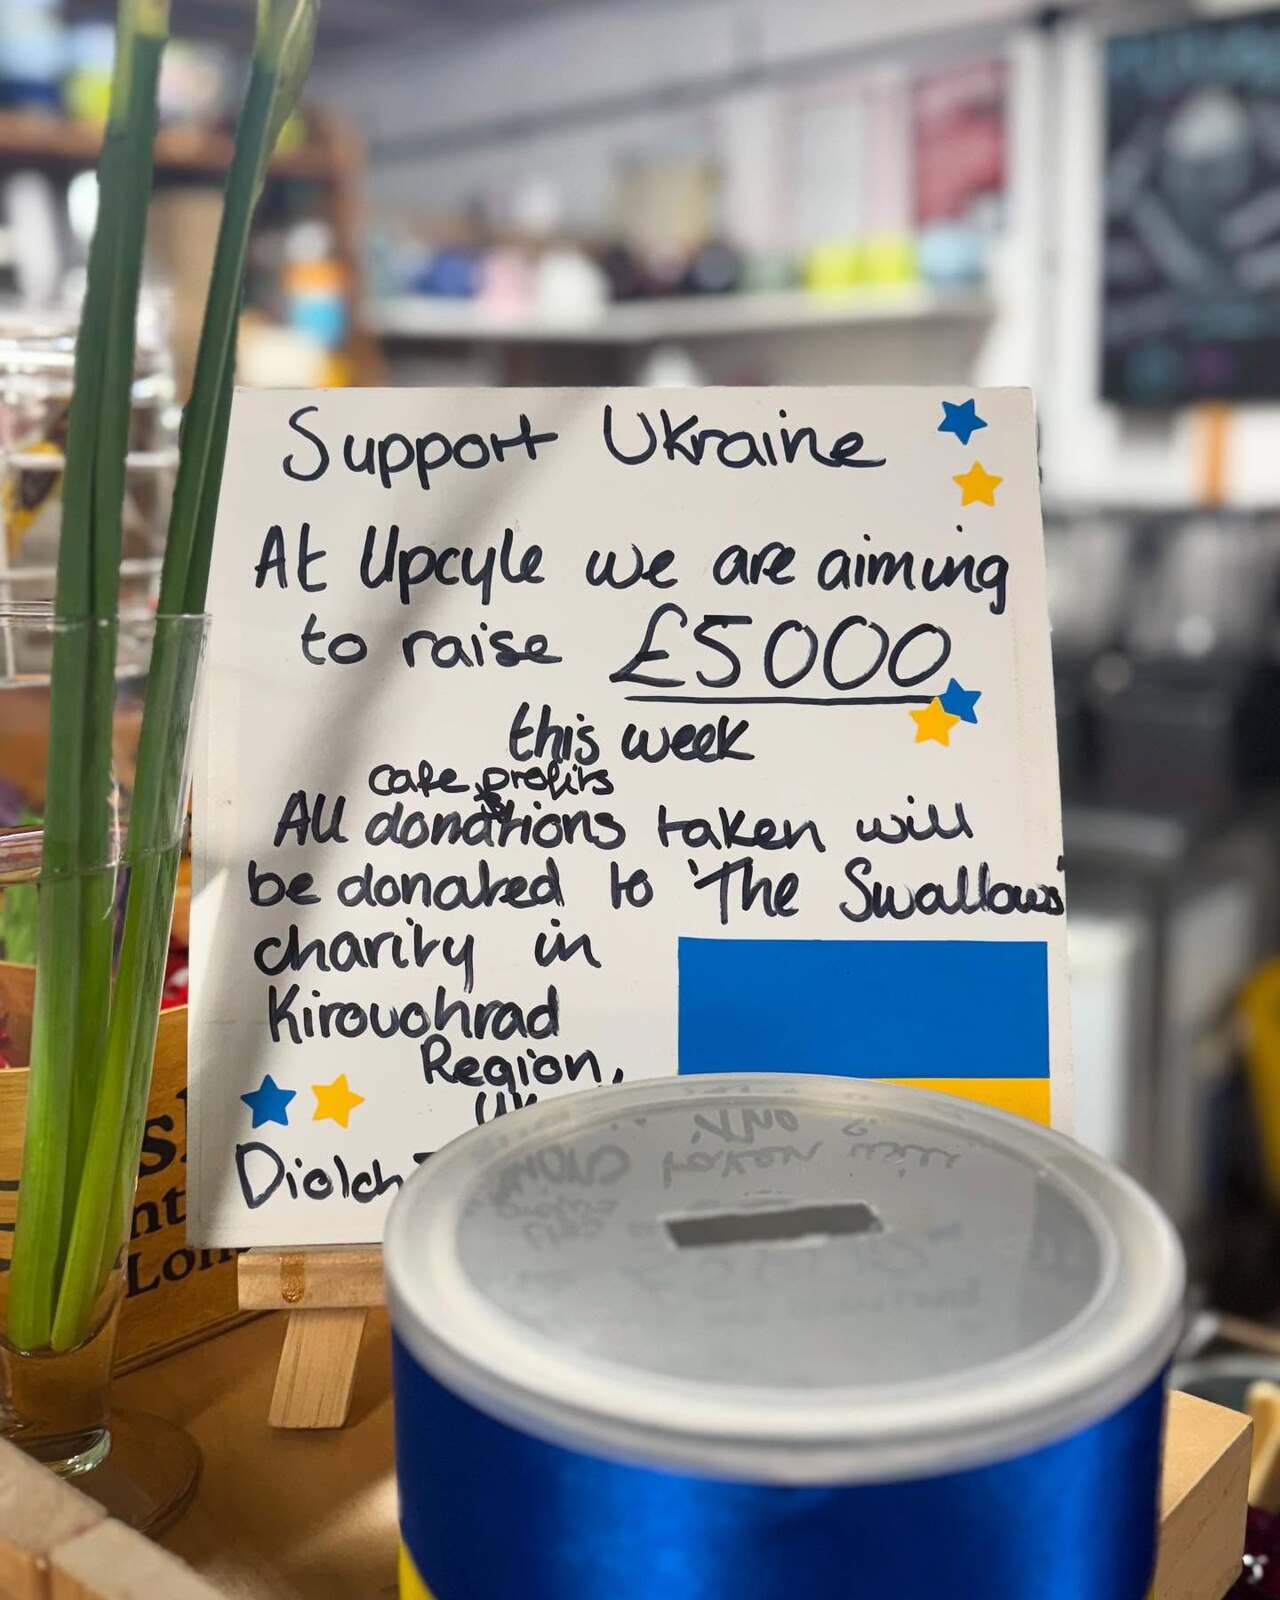 Support Ukraine
At Upcyle we are aiming
to raise £5000
this week
cafe profits
All donations taken will
be donated to 'The Swallows'
charity in
Kirovohrad
Region,
Diolch